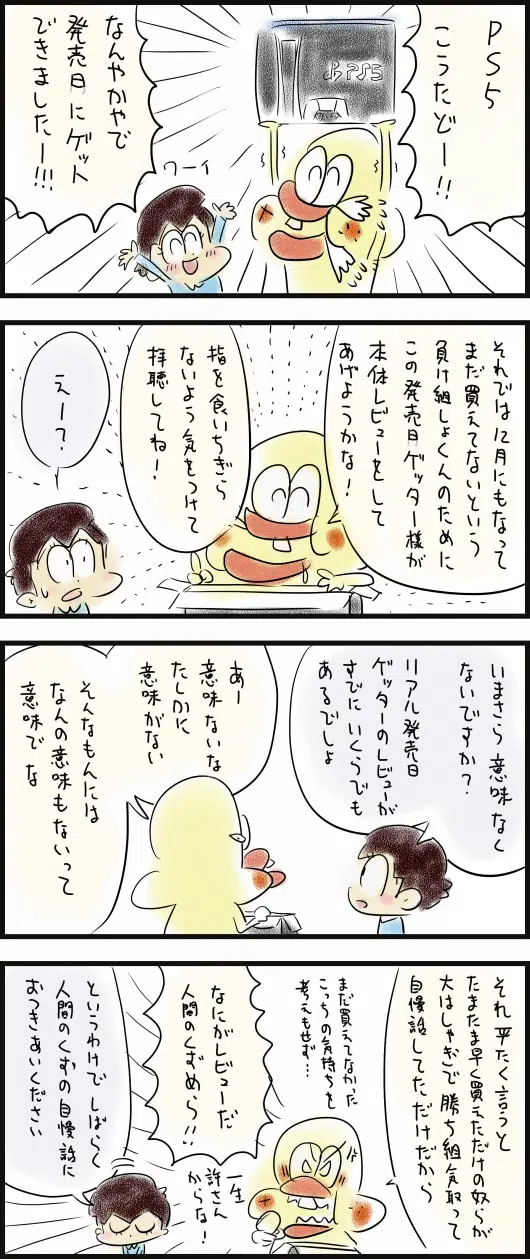 PS5
こうたどー!!
PS5
なんやかやで
発売日にゲット
できましたー!!!
ワーイ
それでは12月にもなって
まだ買えてないという
負け組しょくんのために
この発売日ゲッター様が
本体レビューをして
あげようかな!
指を食いちぎら
ないよう気をつけて
拝聴してね!
えー?
いまさら意味なく
ないですか?
リアル発売日
ゲッターのレビューが
すでにいくらでも
あるでしょ
あー
意味ないな
たしかに
意味がない
そんなもんには
なんの意味もないって
意味でな
それ平たく言うと
たまたま早く買えただけの奴らが
大はしゃぎで勝ち組気取って
自慢話してただけだから
まだ買えてなかった
こっちの気持ちを
考えもせず…
なにがレビューだ
人間のくずめら!!
一生
許さん
からな!
というわけでしばらく
人間のくずの自慢話に
おつきあいください